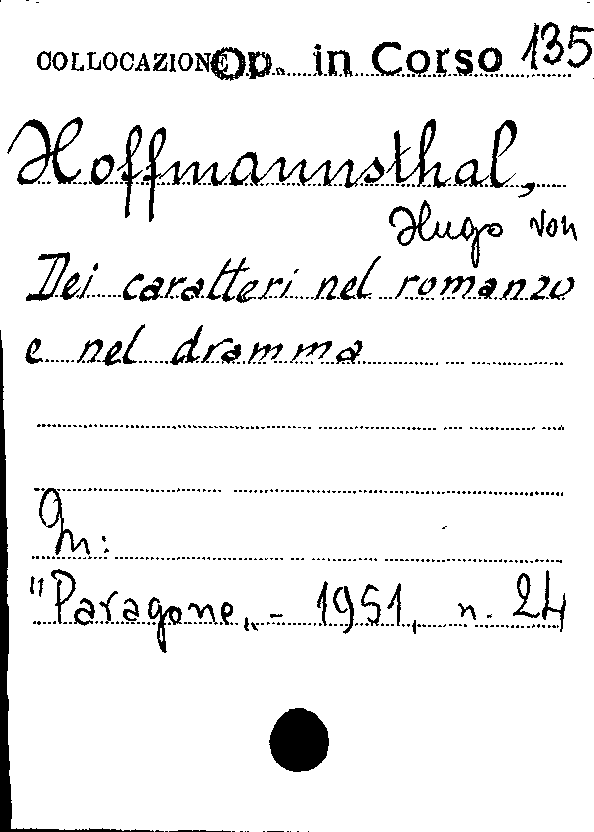 COLLOCAZIONE Op. in Corso 135
Hoffmannsthal,
Hugo von
Dei caratteri nel romanzo
e nel dramma
In:
"Paragone„ - 1951, n. 24